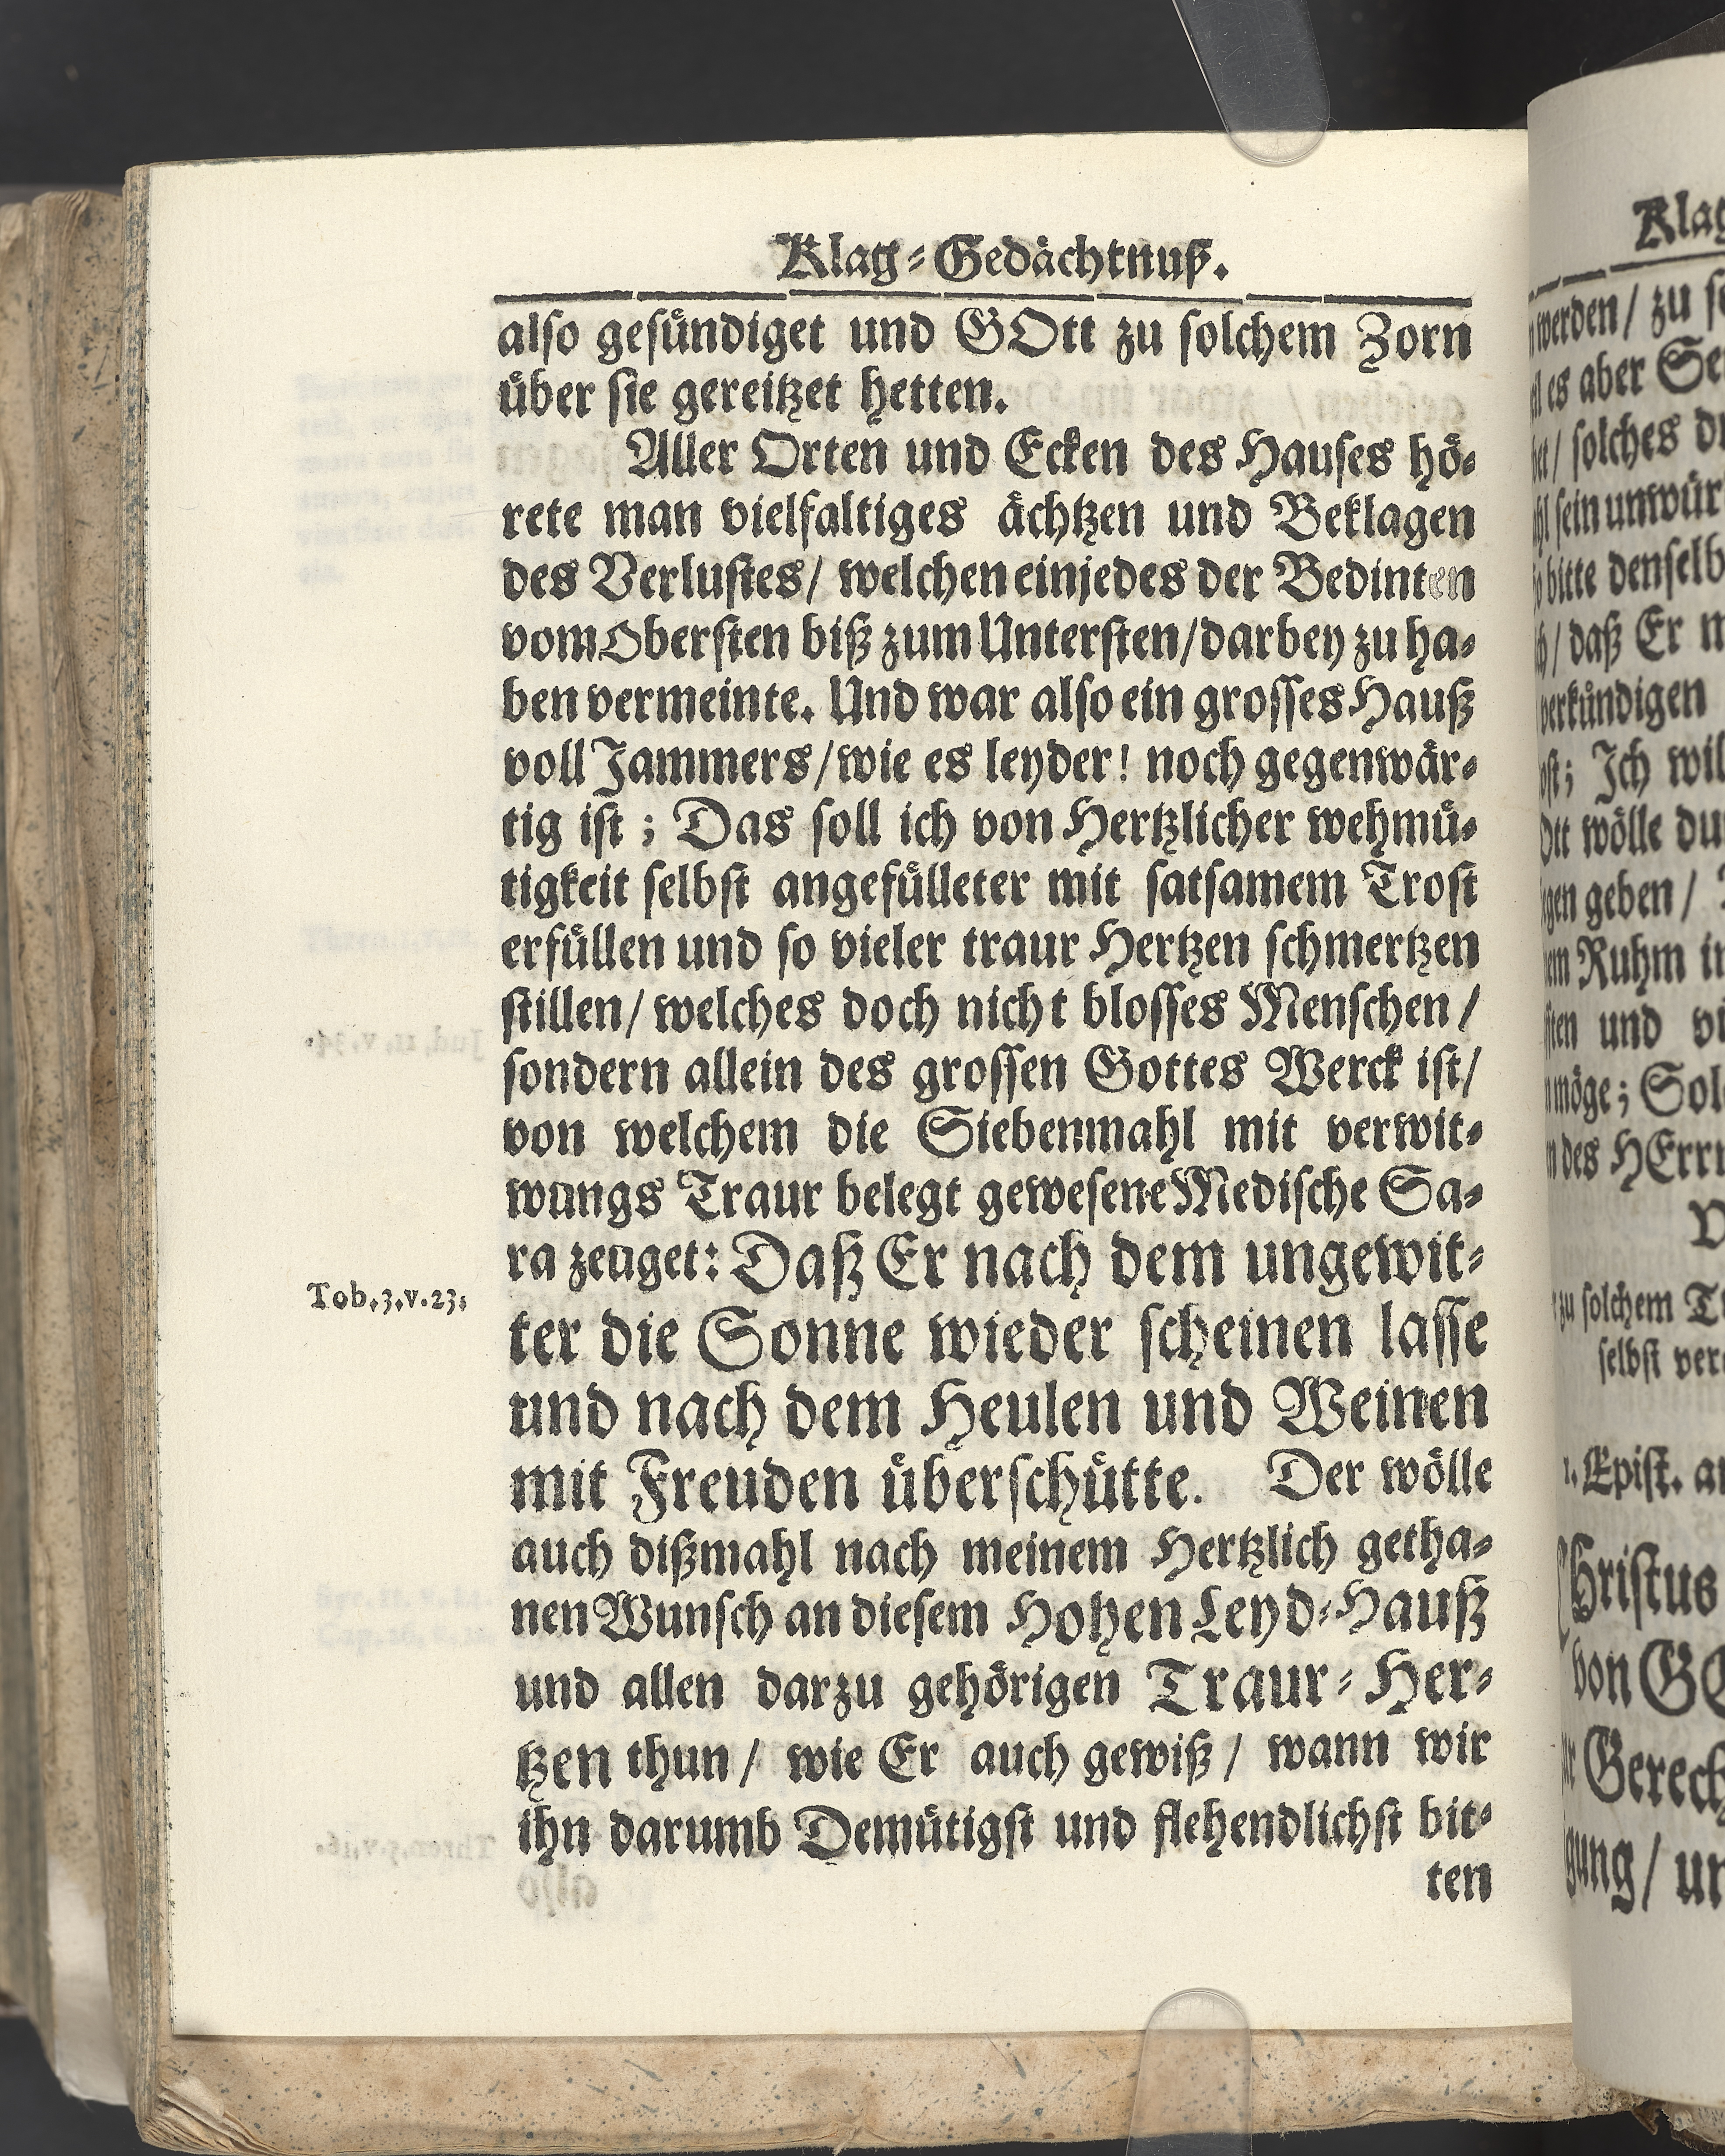 Klag-Gedächtnuß.
also gesündiget und GOtt zu solchem Zorn
über sie gereitzet hetten.
Aller Orten und Ecken des Hauses hö-
rete man vielfaltiges ächtzen und Beklagen
des Verlustes/ welchen einjedes der Bedinten
vom Obersten biß zum Untersten/darbey zu ha-
ben vermeinte. Und war also ein grosses Hauß
voll Jammers/wie es leyder! noch gegenwär-
tig ist; Das soll ich von Hertzlicher wehmü-
tigkeit selbst angefülleter mit satsamem Trost
erfüllen und so vieler traur Hertzen schmertzen
stillen/ welches doch nicht blosses Menschen/
sondern allein des grossen Gottes Werck ist/
von welchem die Siebenmahl mit verwit-
wungs Traur belegt gewesene Medische Sa-
ra zeuget: Daß Er nach dem ungewit-
Tob.3.v.23.
ter die Sonne wieder scheinen lasse
und nach dem Heulen und Weinen
mit Freuden überschütte. Der wölle
auch dißmahl nach meinem Hertzlich getha-
nen Wunsch an diesem Hohen Leyd-Hauß
und allen darzu gehörigen Traur-Her-
tzen thun/ wie Er auch gewiß/ wann wir
ihn darumb Demütigst und flehendlichst bit-
ten
Klag
werden/ zu
es aber
solches
sein unwür
bitte denselb
daß Er
verkündigen
Ich wil
wölle
geben/
Ruhm
und
möge; Sol
des HErrn
zu solchem
selbst ver
1. Epist. an
Christus
von
Gerech